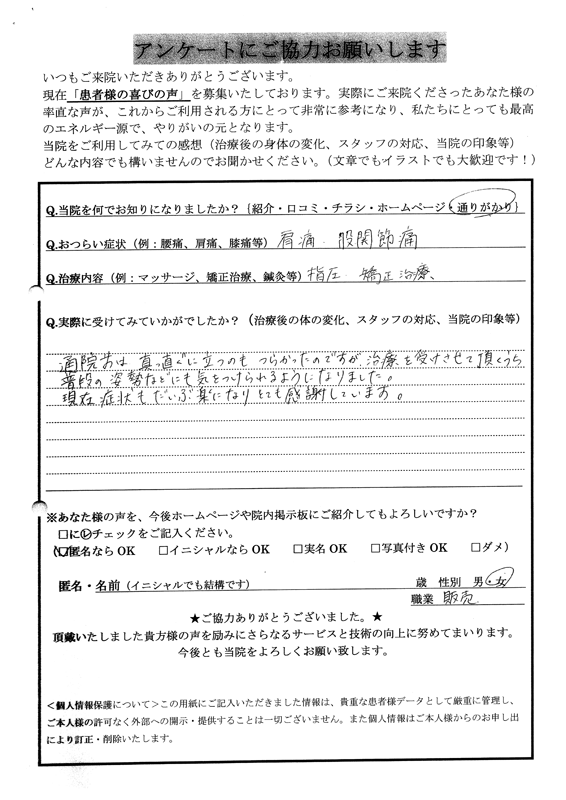 アンケートにご協力お願いします
いつもご来院いただきありがとうございます。
現在「患者様の喜びの声」を募集いたしております。実際にご来院くださったあなた様の
率直な声が、これからご利用される方にとって非常に参考になり、私たちにとっても最高
のエネルギー源で、やりがいの元となります。
当院をご利用してみての感想（治療後の身体の変化、スタッフの対応、当院の印象等）
どんな内容でも構いませんのでお聞かせください。（文章でもイラストでも大歓迎です！）
Q.当院を何でお知りになりましたか？｛紹介・口コミ・チラシ・ホームページ・通りがかり｝
Q.おつらい症状（例：腰痛、肩痛、膝痛等） 肩痛 股関節痛
Q.治療内容（例：マッサージ、矯正治療、鍼灸等） 指圧 矯正治療、
Q.実際に受けてみていかがでしたか？（治療後の体の変化、スタッフの対応、当院の印象等）
通院前は 真っ直ぐに立つのも つらかったのですが 治療を受けさせて頂くうち
普段の姿勢などにも気をつけられるようになりました。
現在症状もだいぶ楽になりとても感謝しています。
※あなた様の声を、今後ホームページや院内掲示板にご紹介してもよろしいですか？
□に☑チェックをご記入ください。
（☑匿名ならOK □イニシャルならOK □実名OK □写真付きOK □ダメ）
匿名・名前（イニシャルでも結構です） 歳 性別 男・女
職業 販売
★ご協力ありがとうございました。★
頂戴いたしました貴方様の声を励みにさらなるサービスと技術の向上に努めてまいります。
今後とも当院をよろしくお願い致します。
＜個人情報保護について＞この用紙にご記入いただきました情報は、貴重な患者様データとして厳重に管理し、
ご本人様の許可なく外部への開示・提供することは一切ございません。また個人情報はご本人様からのお申し出
により訂正・削除いたします。